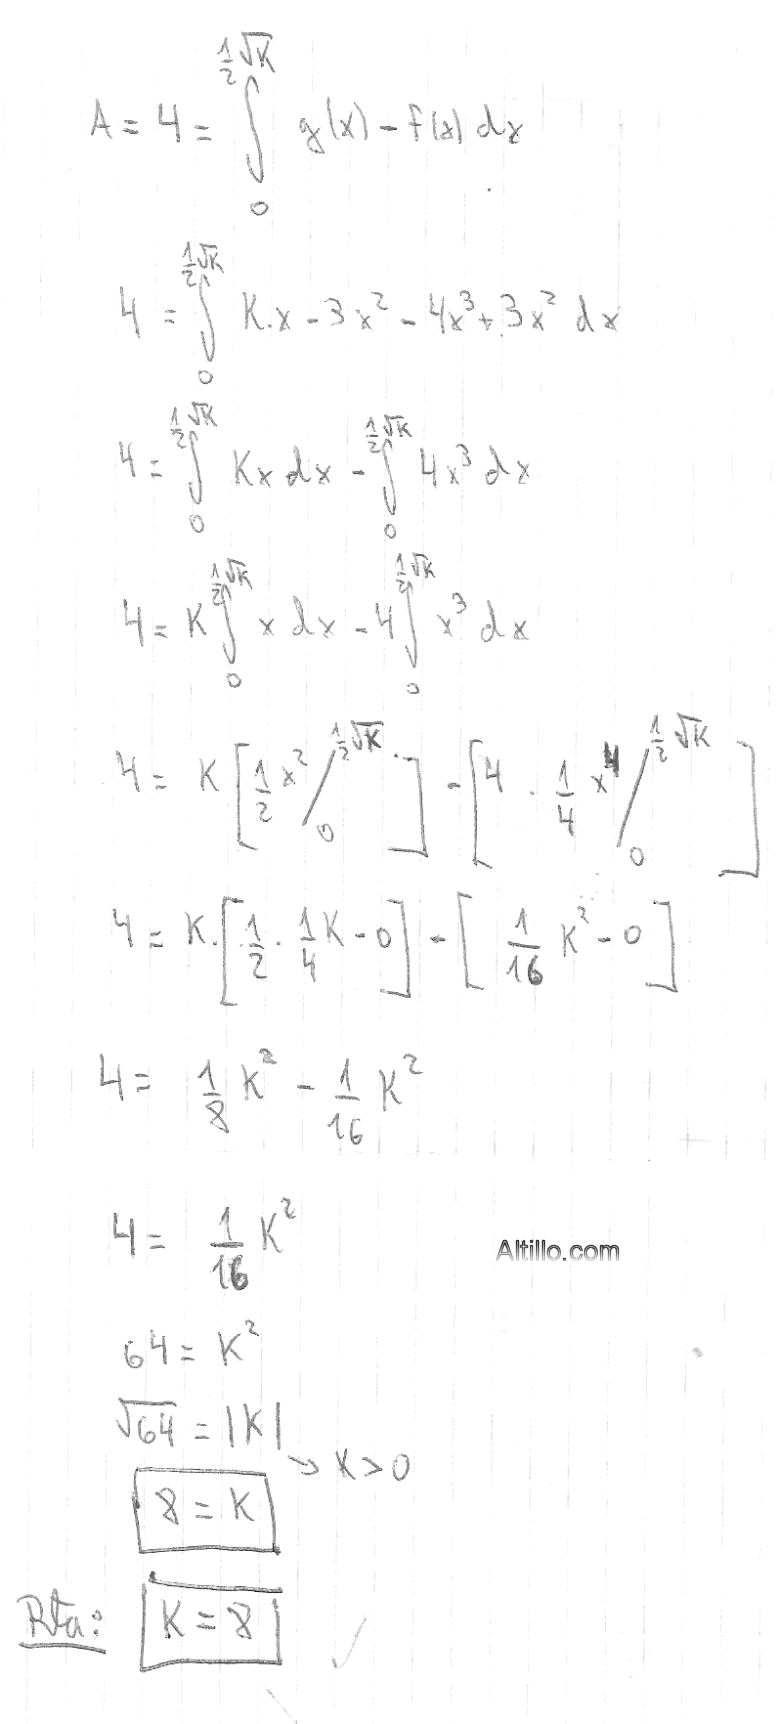 A = 4 = ∫₀^{½√K} g(x) - f(x) dx
4 = ∫₀^{½√K} K.x - 3x² - 4x³ + 3x² dx
4 = ∫₀^{½√K} Kx dx - ∫₀^{½√K} 4x³ dx
4 = K ∫₀^{½√K} x dx - 4 ∫₀^{½√K} x³ dx
4 = K [ 1/2 x² /₀^{½√K} ] - [ 4 . 1/4 x⁴ /₀^{½√K} ]
4 = K. [ 1/2 . 1/4 K - 0 ] - [ 1/16 K² - 0 ]
4 = 1/8 K² - 1/16 K²
4 = 1/16 K²
Altillo.com
64 = K²
√64 = |K|
→ K > 0
8 = K
Rta: K = 8